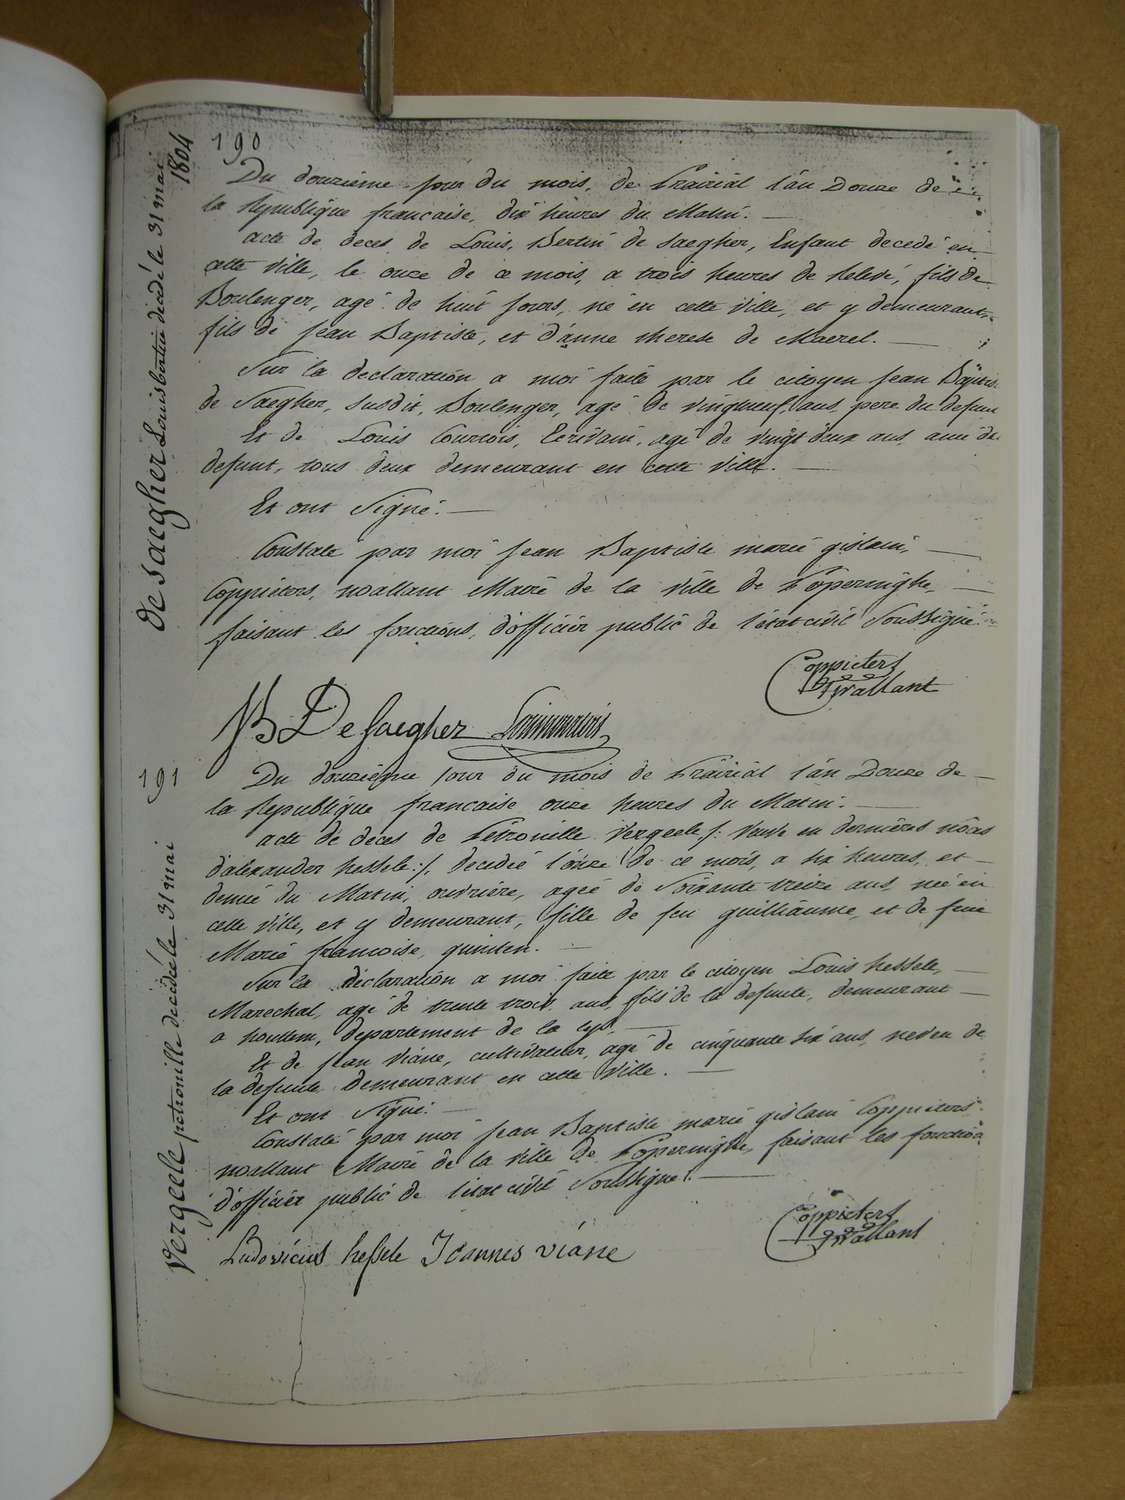 1804
190
De saegher Louis bertin décédé le 31 mai
Du douzième jour du mois, de Prairial l'an Douze de
la Republique francaise, dix heures du Matin. —
acte de deces de Louis, Bertin de Saegher, Enfant decedé en
cette ville, le onze de ce mois, a trois heures de Relevé, fils de
Boulenger, agé de huit jours, né en cette ville, et y demeurant,
fils de Jean Baptiste, et d'anne therese de Maerel. —
Sur la declaration a moi faite par le citoyen Jean Baptis.
de Saegher, susdit, Boulenger, agé de vingtneuf ans, pere du defunt
Et de Louis Courtois, Ecrivain, agé de vingt deux ans, ami de
defunt, tous deux demeurant en cette ville. —
Et ont Signé. —
Constaté par moi Jean Baptiste marie gislain, —
Coppieters, wallant Maire de la ville de Poperinghe, —
faisant les fonctions, d'officier public de l'état civil Soussigné.
Coppieters
Twallant
JB De Saegher Louis Courtois
191
Vergeele petronille décédée le 31 mai
Du douzième jour du mois de Prairial l'an Douze de —
la Republique francaise onze heures du Matin. —
acte de deces de Petronille Vergeele /: veuve en dernières nôces
d'alexander hessele :/, decedée l'onze de ce mois, a six heures, et —
demie du Matin, ouvrière, ageé de Soixante treize ans, neé en
cette ville, et y demeurant, fille de feu guilliaume, et de feue
Marie francoise, quinten. —
Sur la declaration a moi faite par le citoyen Louis hessele, —
Marechal, agé de trente trois ans, fils de la defunte, demeurant —
a houttem, departement de la Lys. —
Et de Jean Viane, cultivateur, agé de cinquante six ans, neveu de
la defunte demeurant en cette ville. —
Et ont Signé. —
Constaté par moi Jean Baptiste marie gislain Coppieters
wallant Maire de la ville de Poperinghe, faisant les fonctions
d'officier public de l'état civil Soussigné. —
Coppieters
Twallant
Ludovicus hessele Joannes viane